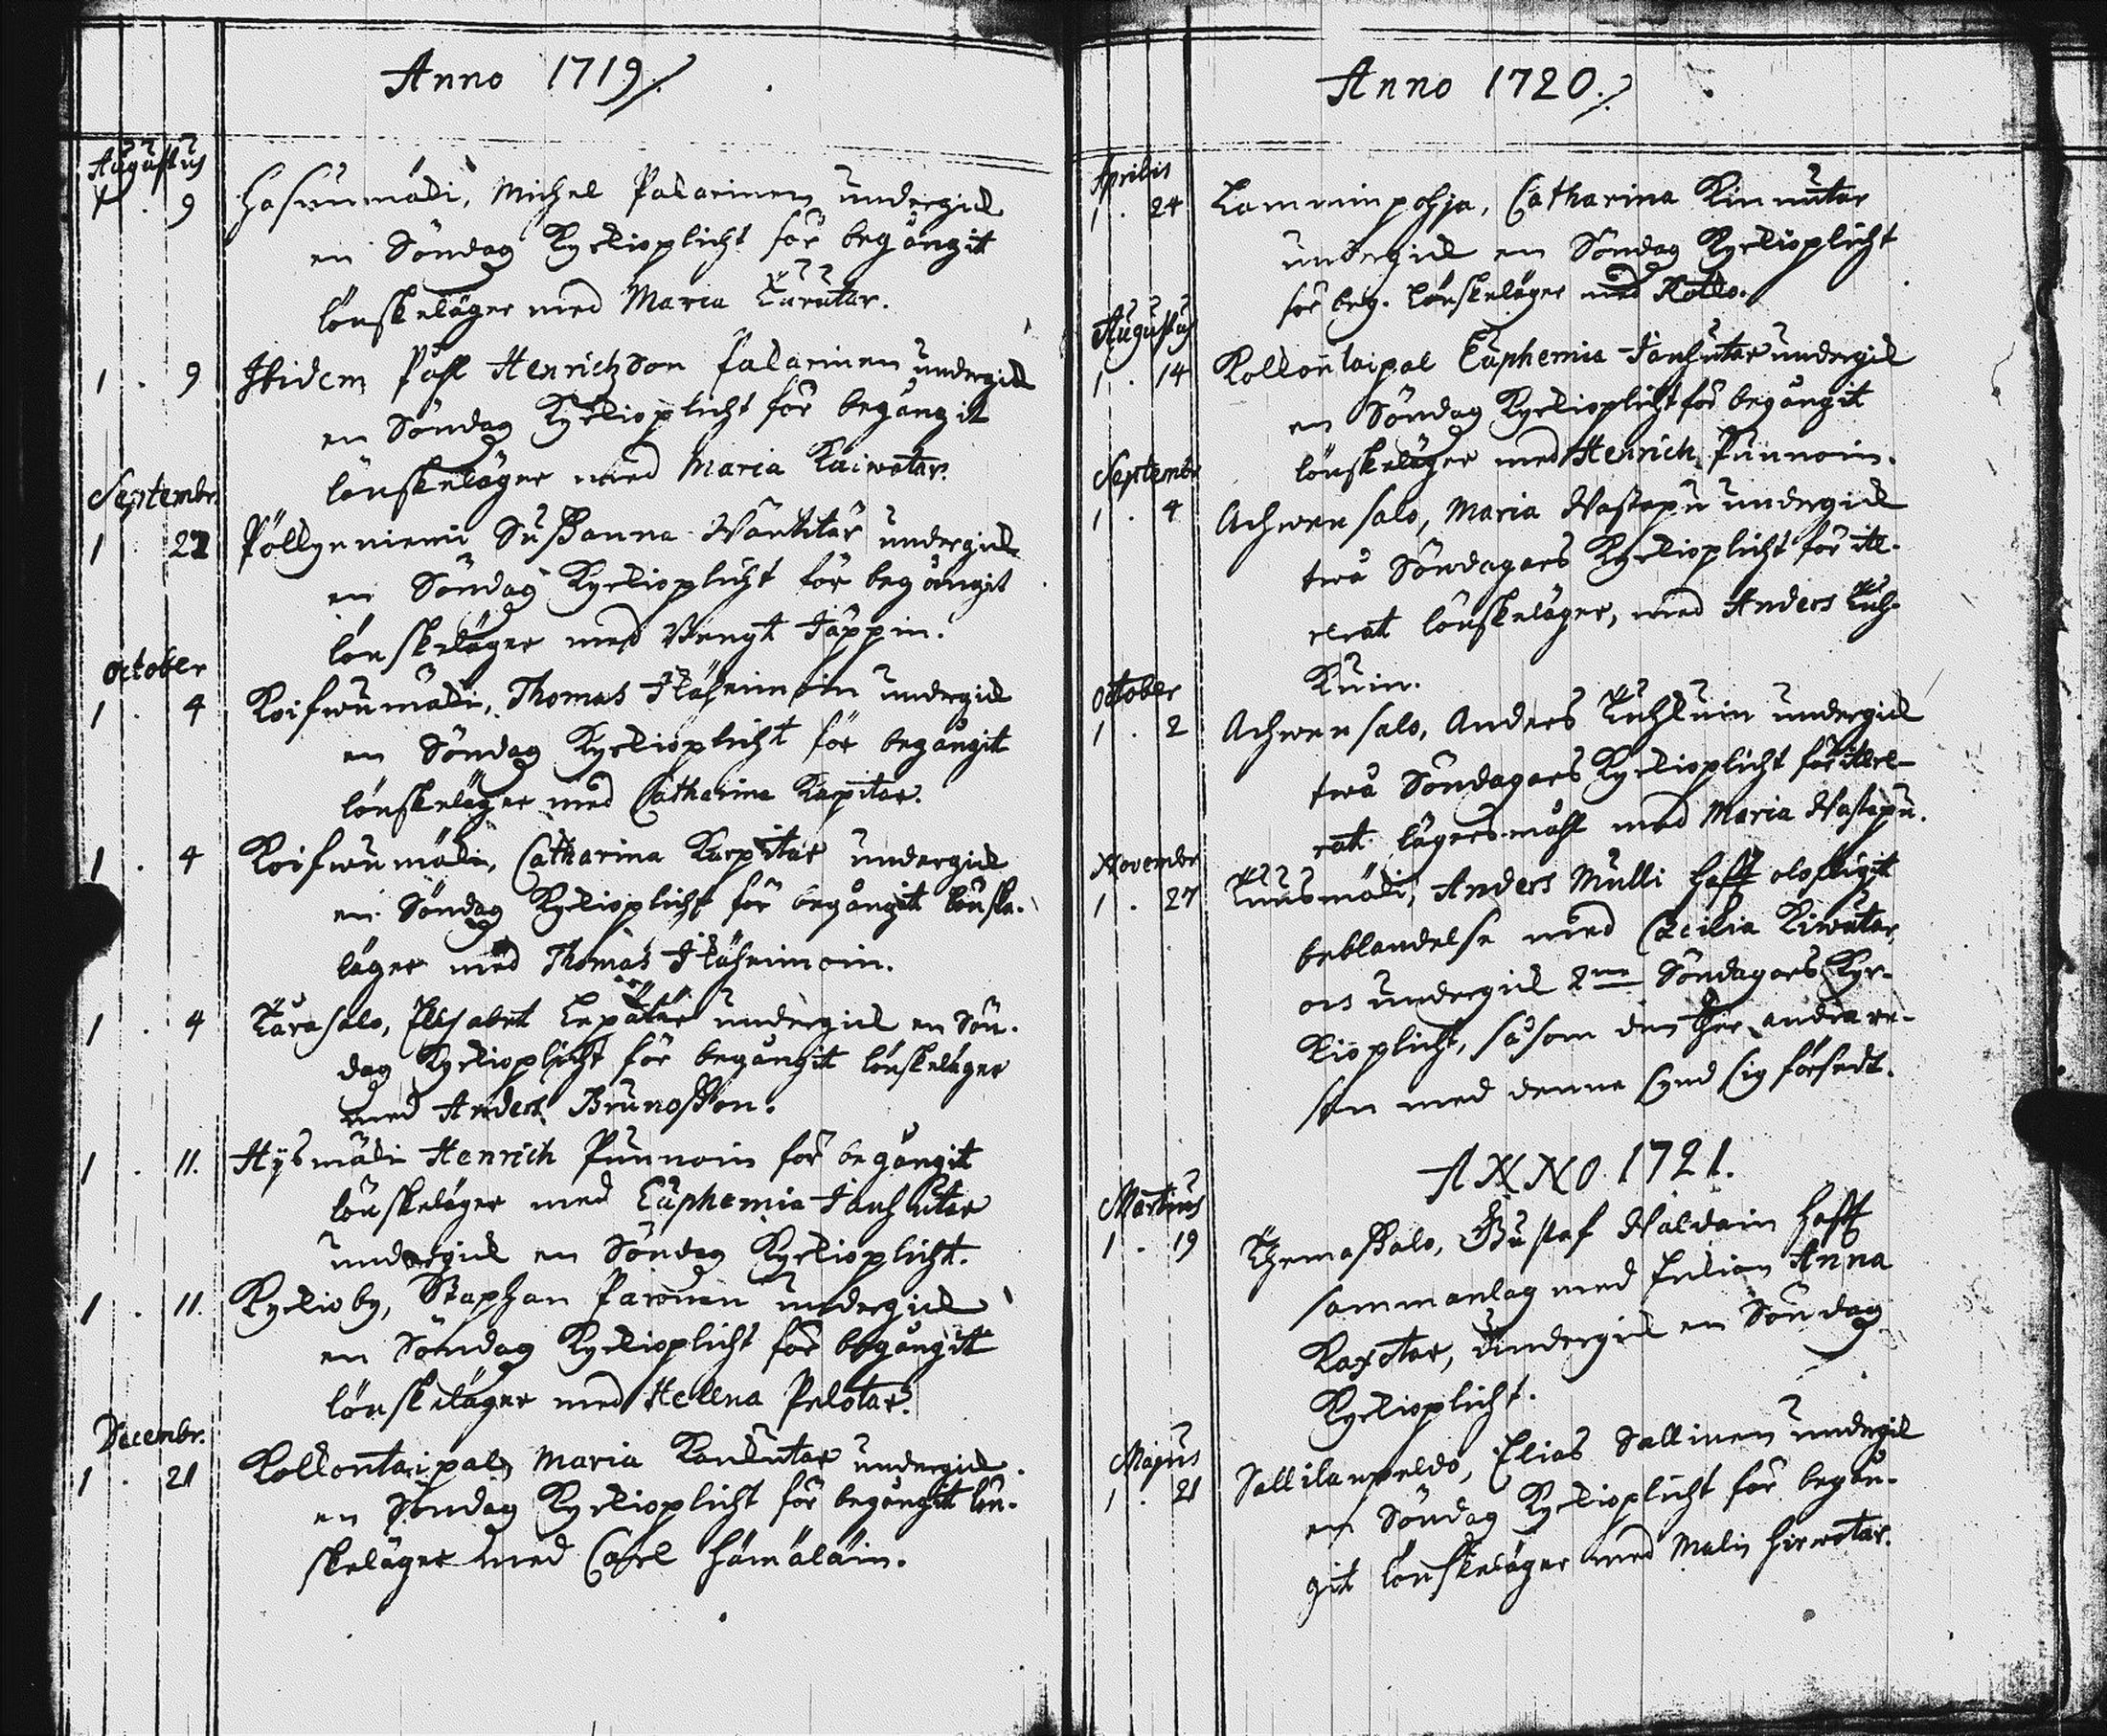 Anno 1719
Augustus
1 . 9 Hasunmäki, Michel Palarinen undergick
en Söndag Kyrkioplicht för begångit
lönskeläger med Maria Kurutar.
1 . 9 Ibidem Påhl Henrichson Palarinen undergick
en Söndag Kyrkioplicht för begångit
lönskeläger med Maria Kaiwatar.
Septembr.
1 Pöllyeniemi Sußanna Wäntitär undergick
en Söndag Kyrkioplicht för begångit
lönskeläger med Bengt Jäppin.
October
1 . 4 Koifwumäki, Thomas undergick
en Söndag Kyrkioplicht för begångit
lönskeläger med Catharina Karpitar.
1 . 4 Koifwumäki, Catharina Karpitar undergick
en Söndag Kyrkioplicht för begångit lönske-
läger med Thomas
1 . 4 Kärasalo, Elisabet Lepätär undergick en Sön-
dag Kyrkioplicht för begångit lönskeläger
med Anders Brunoßon.
1 . 11. Hysmäki Henrich Punnoin för begångit
lönskeläger med Euphemia Janhutar
undergick en Söndag Kyrkioplicht.
1 . 11. Kyrkioby, Staphan Parouen undergick
en Söndag Kyrkioplicht för begångit
lönskeläger med Helena Pelotar.
Decembr.
1 . 21 Kolkontaipal, Maria Kankutar undergick
en Söndag Kyrkioplicht för begångit lön-
skeläger med Carl Hämäläin.
Anno 1720.
Aprilis
1 . 24 Lamminpohja, Catharina Kinnutar
undergick en Söndag Kyrkioplicht
för beg. lönskeläger med
Augustus
1 . 14 Kolkontaipal Euphemia Janhutar undergick
en Söndag Kyrkioplicht för begångit
lönskeläger med Henrich Punnoin.
Septembr
1 . 4 Achwensalo, Maria Wastapu undergick
twå Söndagars Kyrkioplicht för itt-
rerat lönskeläger, med Anders Kuh-
kuin.
October
1 . 2 Achwensalo, Anders Kuhkuin undergick
twå Söndagars Kyrkioplicht för itere-
rat lägersmåhl med Maria Wastapu.
Novembr
1 . 27 Kuusmäki, Anders Mulli haft olofligit
beblandelse med Cæcilia Kiwutar,
ock undergick 2ne Söndagars Kyr-
kioplicht, såsom den ther andra re-
san med denne synd sig försedt.
ANNO 1721.
Martius
1 . 19 Thomaßalo, Gustaf Nalckain haft
sammanlag med Enkian Anna
Kaxotar, undergick en Söndag
Kyrkioplicht.
Majus
1 . 21 Sallilanpeldo, Elias Sallinen undergick
en Söndag Kyrkioplicht för begån-
git lönskeläger med Malin Hirwotar.